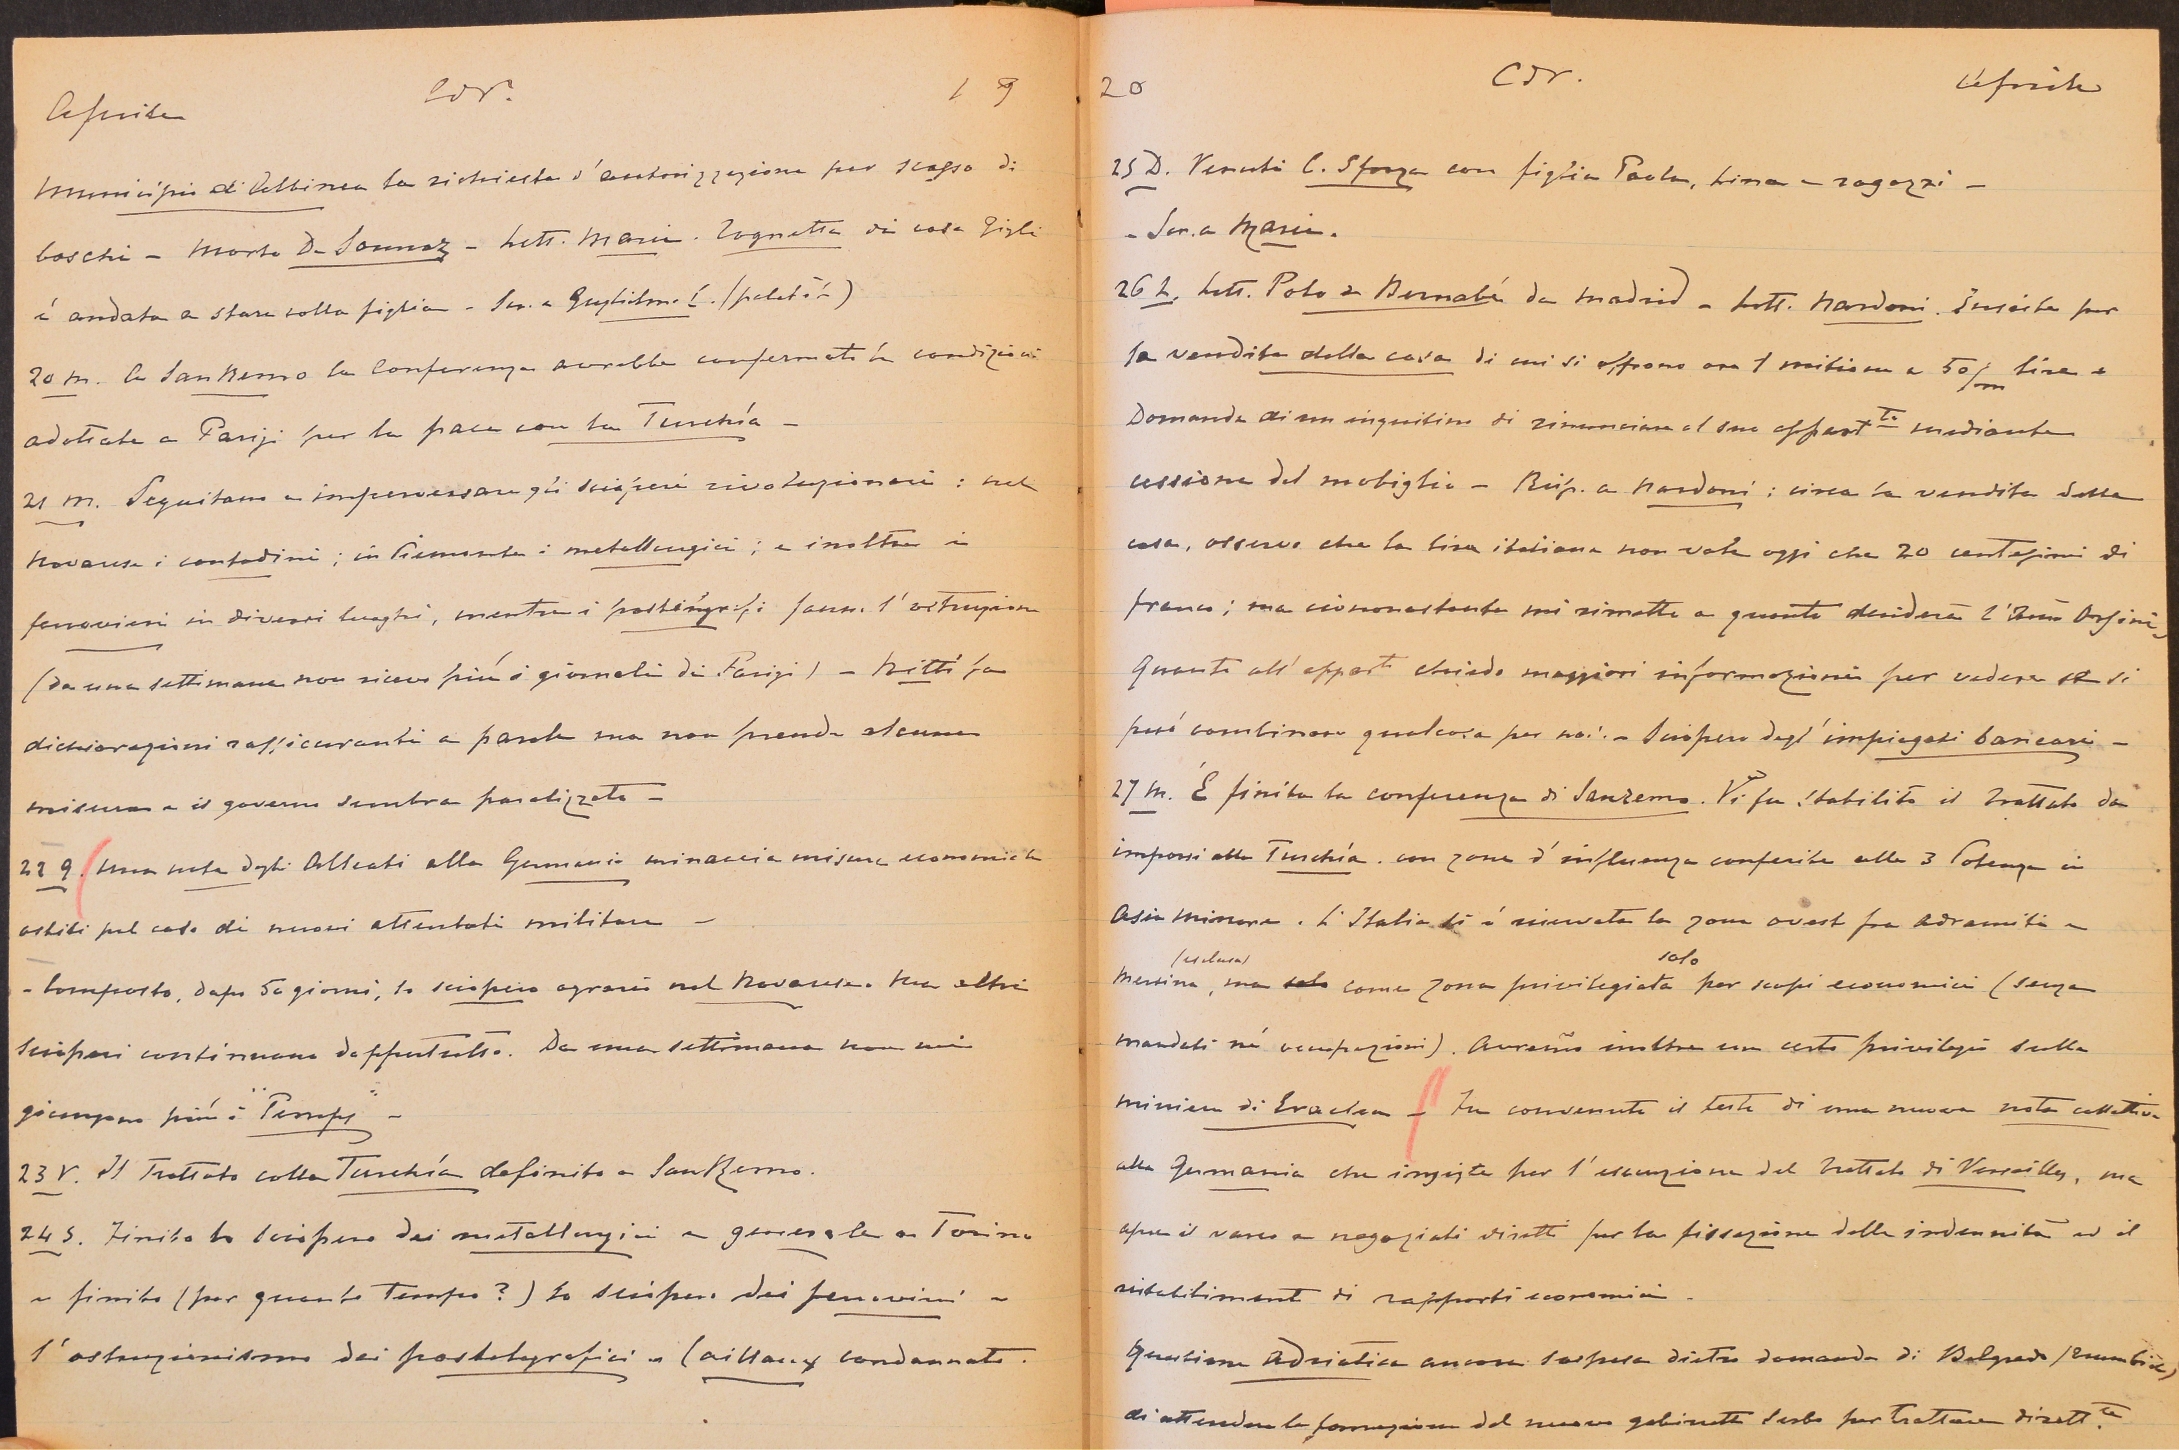 Aprile Cdr. 19
Municipio di Albinea la richiesta d'autorizzazione per scasso di
boschi - Morto De Sonnaz - Lett. Maria. Tognetta di casa Gigli
é andata a stare colla figlia - Scr. a Guglielmo É. (paletôt)
20 M. A San Remo la Conferenza avrebbe confermato le condizioni
adottate a Parigi per la pace con la Turchía -
21 M. Seguitano a imperversare gli scioperi rivoluzionari: nel
Novarese i contadini; in Piemonte i metallurgici; e inoltre i
ferrovieri in diversi luoghi, mentre i postelegrafi fanno l'ostruzione
(da una settimana non ricevo piú i giornali di Parigi) - Nitti fa
dichiarazioni rassicuranti a parole ma non prende alcuna
misura e il governo sembra paralizzato -
22 G. Una nota degli Alleati alla Germania minaccia misure economiche
ostili pel caso di nuovi attentati militari -
- Composto, dopo 50 giorni, lo sciopero agrario nel Novarese. Ma altri
scioperi continuano dappertutto. Da una settimana non mi
giungono piú i "Temps" -
23 V. Il Trattato colla Turchía definito a San Remo.
24 S. Finito lo sciopero dei metallurgici e generale a Torino
e finito (per quanto tempo?) lo sciopero dei ferrovieri e
l'ostruzionismo dei postelegrafici - Caillaux condannato.
20 Cdr. Aprile
25 D. Venuti C. Sforza con figlia Paola, Lina e ragazzi -
- Scr. a Maria.
26 L. Lett. Polo de Bernabé da Madrid - Lett. Nardoni. Insiste per
la vendita della casa di cui si offrono ora 1 milione e 50/m lire e
Domanda di un inquilino di rinunciare al suo appart.to mediante
cessione del mobiglio - Risp. a Nardoni: circa la vendita della
casa, osservo che la lira italiana non vale oggi che 20 centesimi di
franco; ma ciononostante mi rimetto a quanto deciderà l' Orsini -
Quanto all'appart. chiedo maggiori informazioni per vedere se si
puó combinare qualcosa per noi. - Sciopero degl'impiegati bancari -
27 M. É finita la conferenza di Sanremo. Vi fu stabilito il trattato da
imporsi alla Turchía. con zone d'influenza conferite alle 3 Potenze in
Asia Minore. L'Italia si é riservata la zona ovest fra Adramiti e
Mersina (esclusa), ma solo come zona privilegiata solo per scopi economici (senza
mandati né occupazioni). Avremo inoltre un certo privilegio sulle
miniere di Eraclea - Fu convenuto il testo di una nuova nota collettiva
alla Germania che insiste per l'esecuzione del trattato di Versailles, ma
apre il varco a negoziati diretti per la fissazione delle indennità ed il
ristabilimento di rapporti economici -
Questione Adriatica ancora sospesa dietro domanda di Belgrado (Trumbic)
di attendere la formazione del nuovo gabinetto serbo per trattare dirett.te